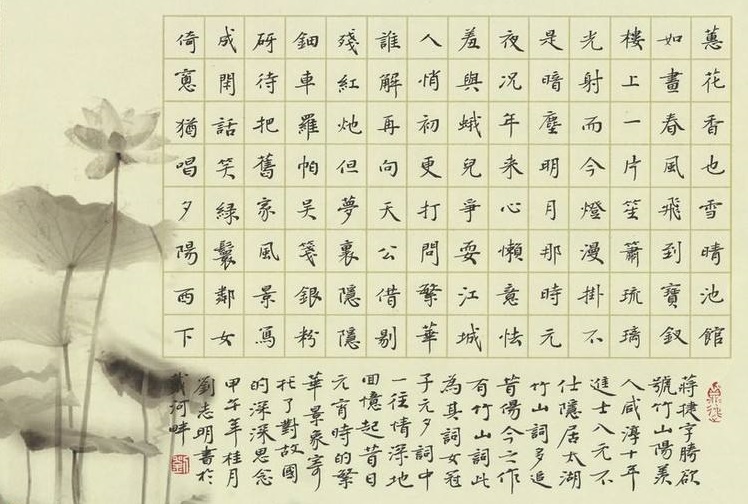 蕙花香也雪晴池館
如畫春風飛到寶釵
樓上一片笙簫琉璃
光射而今燈漫掛不
是暗塵明月那時元
夜況年来心懶意怯
羞與蛾兒爭耍江城
人悄初更打問繁華
誰解再向天公借剔
殘紅灺但夢裏隱隱
鈿車羅帕吴箋銀粉
砑待把舊家風景寫
成閑話笑綠鬟鄰女
倚窻猶唱夕陽西下
蔣捷字勝欲
號竹山陽羡
人咸淳十年
進士入元不
仕隱居太湖
竹山詞多追
昔傷今之作
有竹山詞此
為其詞女冠
子元夕詞中
一往情深地
回憶起昔日
元宵時的繁
華景象寄
托了對故國
的深深思念
甲午年桂月
劉志明書於
戴河畔